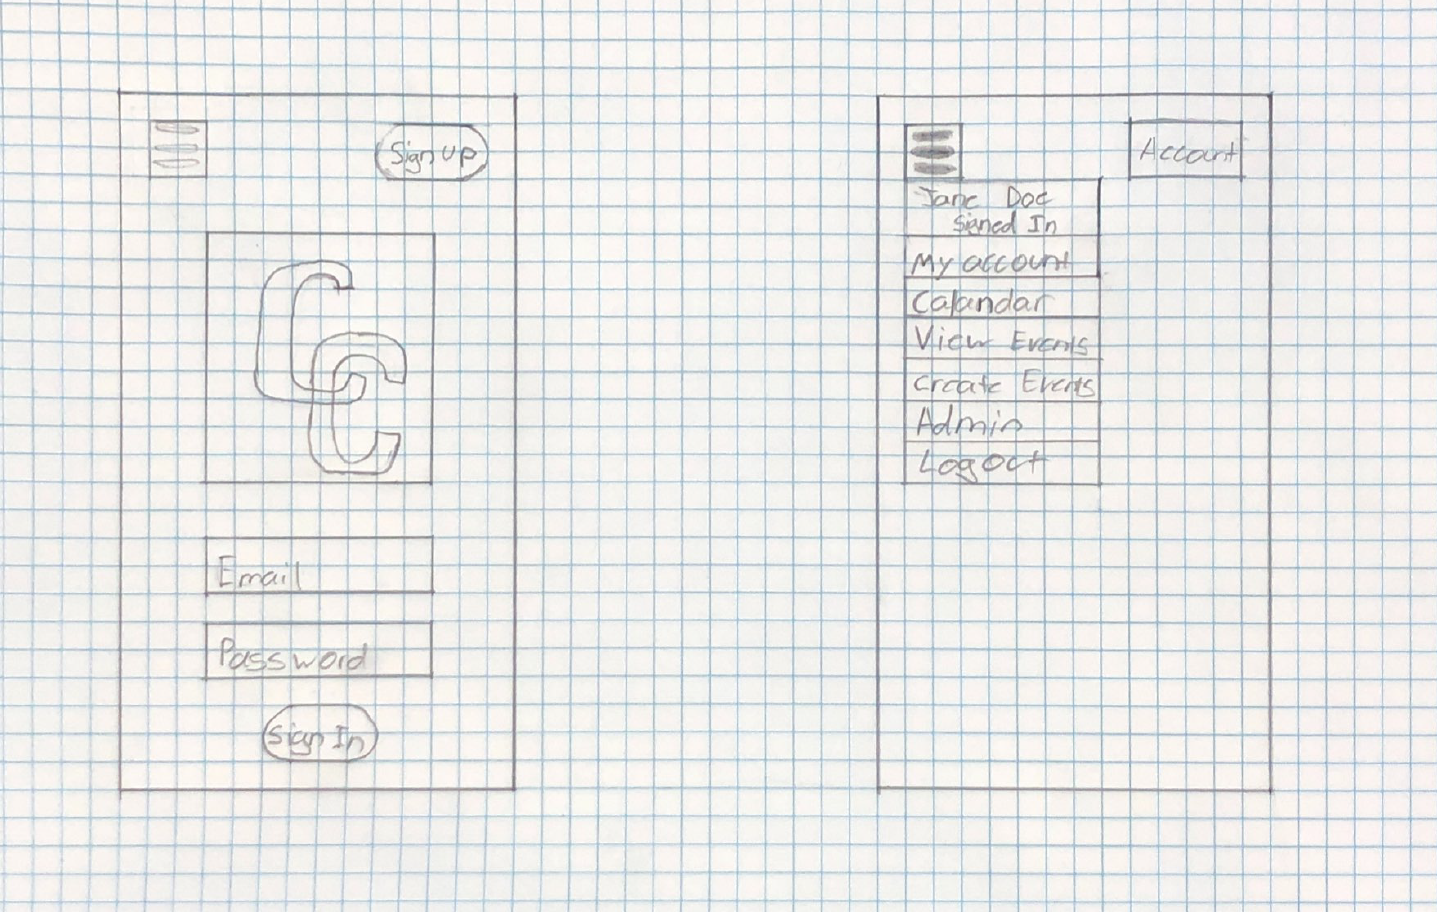 Sign up
CC
Email
Password
Sign In
Account
Jane Doe
Signed In
My account
Calandar
View Events
Create Events
Admin
Log Out